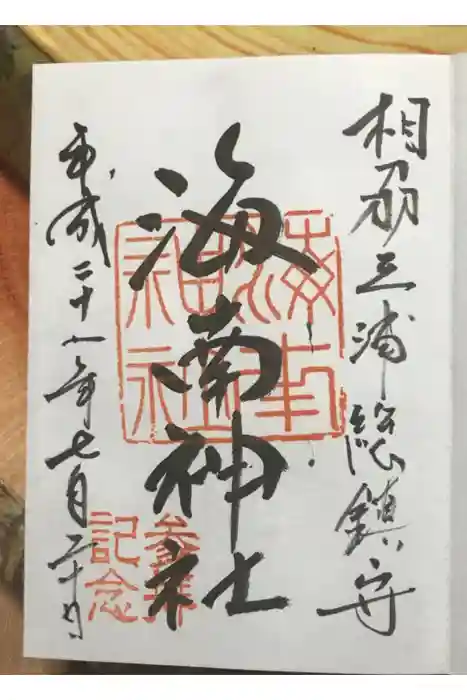 相刕三浦総鎮守
海南神社
参拝
記念
平成二十八年七月二十日